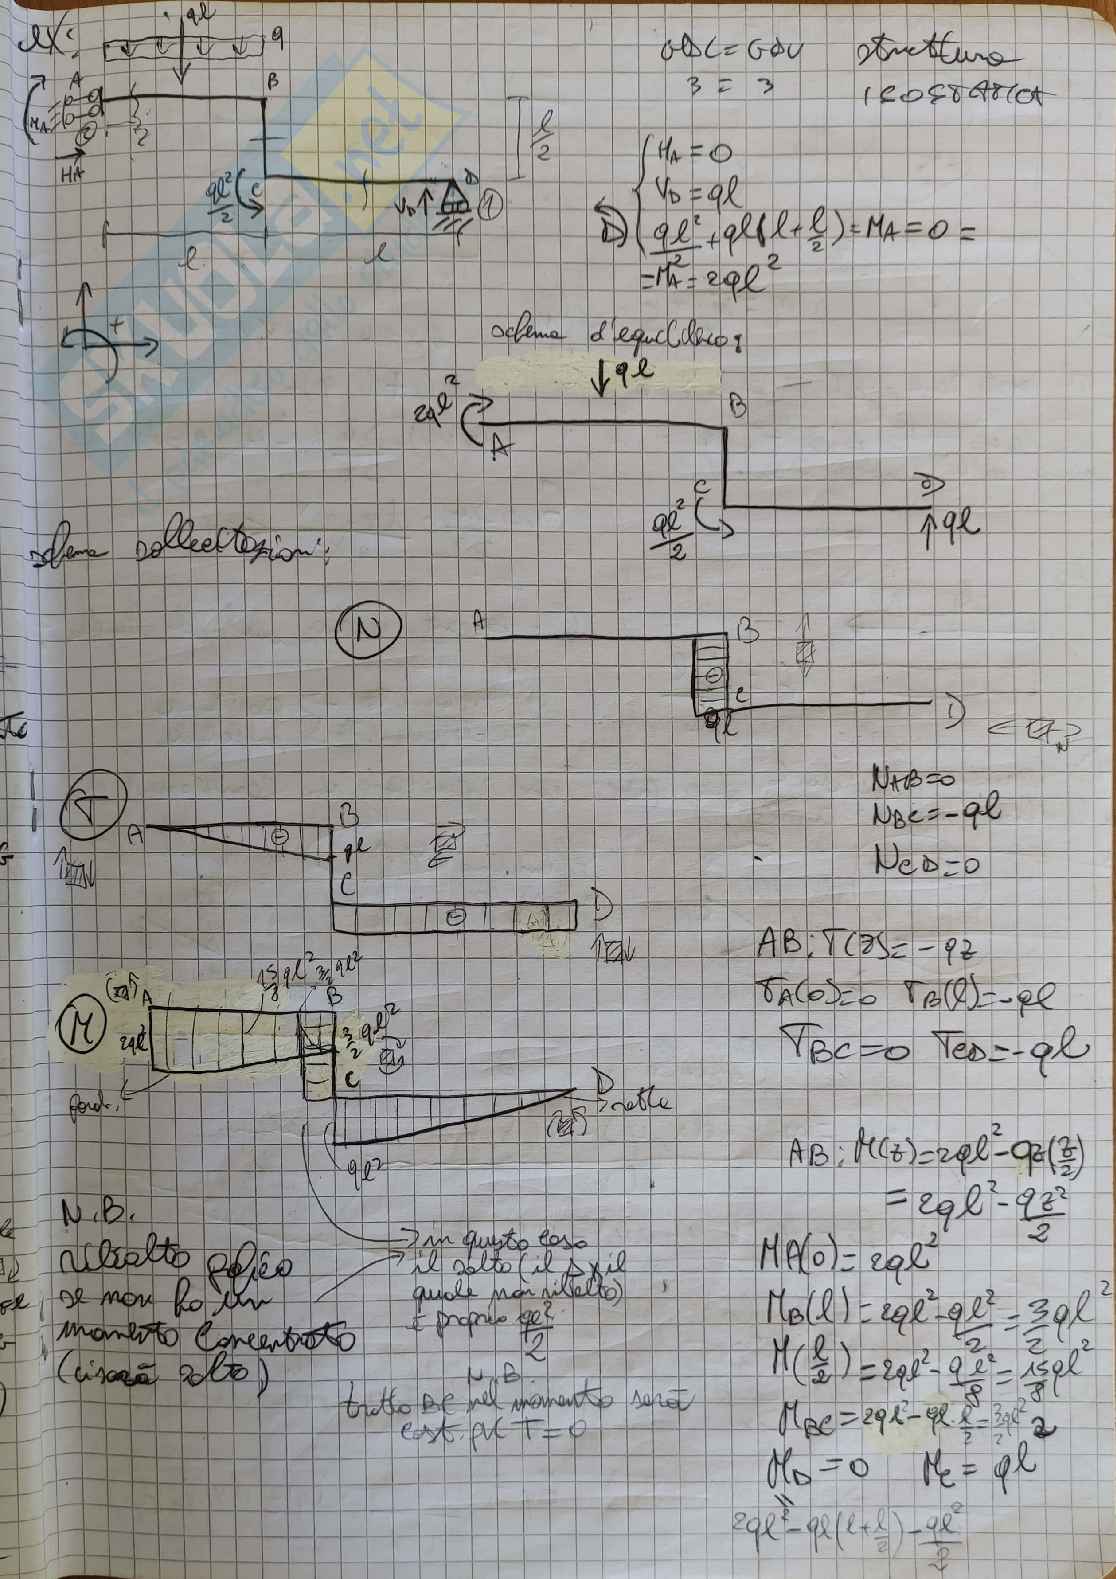 ex:
ql
q
A
B
MA
HA
ql²/2
C
VD
D
1
2
l
l
l/2
+
GDC = GDV struttura
3 = 3 isostatica
HA = 0
VD = ql
D) ql²/2 + ql(l + l/2) - MA = 0 =
= MA = 2ql²
schema d'equilibrio:
ql
2ql²
A
B
C
ql²/2
D
ql
schema sollecitazioni:
N
A
B
C
ql
D
N
NAB = 0
NBC = -ql
NCD = 0
T
A
B
ql
C
D
AB: T(z) = -qz
TA(0) = 0 TB(l) = -ql
TBC = 0 TCD = -ql
M
A
15/8 ql²
3/2 ql²
B
2ql²
3/2 ql²
C
D
retta
ql²
AB: M(z) = 2ql² - qz(z/2)
= 2ql² - qz²/2
MA(0) = 2ql²
MB(l) = 2ql² - ql²/2 = 3/2 ql²
M(l/2) = 2ql² - ql²/8 = 15/8 ql²
MBC = 2ql² - ql · l/2 = 3/2 ql²
MD = 0 MC = ql
2ql² - ql(l + l/2) - ql²/2
N.B.
ribalto
se non ho un
momento concentrato
(ci sarà salto)
in questo caso
il salto (il Δ x il
quale non ribalto)
è proprio ql²/2
N.B.
tratto BC nel momento sarà
cost. pk T = 0
SKUOLA.net